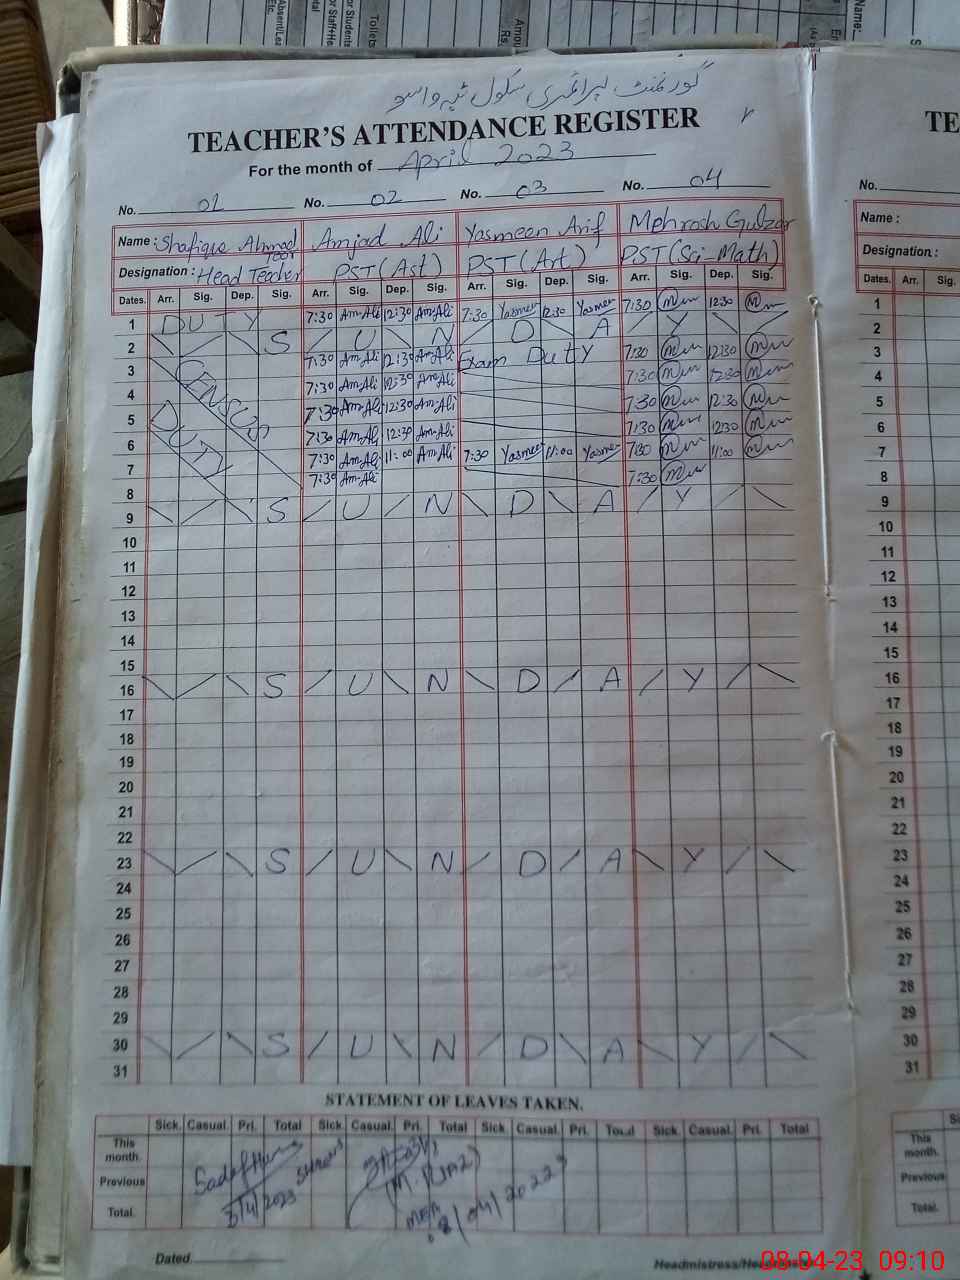 گورنمنٹ پرائمری سکول ٹبہ واسو
TEACHER'S ATTENDANCE REGISTER
For the month of April 2023
No. 01 No. 02 No. 03 No. 04
Name : Shafique Ahmad Amjad Ali Yasmeen Arif Mehrosh Gulzar
Designation : Head Teacher PST (Art) PST (Art) PST (Sci-Math)
Dates. Arr. Sig. Dep. Sig. Arr. Sig. Dep. Sig. Arr. Sig. Dep. Sig. Arr. Sig. Dep. Sig.
1 DUTY 7:30 Am.Ali 12:30 Am.Ali 7:30 Yasmeen 12:30 Yasmeen 7:30 12:30
2 S U N D A Y
3 CENSUS 7:30 Am.Ali 12:30 Am.Ali Exam Duty 7:30 12:30
4 7:30 Am.Ali 12:30 Am.Ali 7:30 12:30
5 DUTY 7:30 Am.Ali 12:30 Am.Ali 7:30 12:30
6 7:30 Am.Ali 12:30 Am.Ali 7:30 12:30
7 7:30 Am.Ali 11:00 Am.Ali 7:30 Yasmeen 11:00 Yasmeen 7:30 11:00
8 7:30 Am.Ali 7:30
9 S U N D A Y
10
11
12
13
14
15
16 S U N D A Y
17
18
19
20
21
22
23 S U N D A Y
24
25
26
27
28
29
30 S U N D A Y
31
STATEMENT OF LEAVES TAKEN.
Sick. Casual. Pri. Total Sick. Casual. Pri. Total Sick. Casual. Pri. Total Sick. Casual. Pri. Total
This month.
Previous
Total.
5/4/2023
(M. IJAZ)
MEA
8/04/2023
Dated
Headmistress/
TE
No.
Name :
Designation :
Dates. Arr. Sig.
1
2
3
4
5
6
7
8
9
10
11
12
13
14
15
16
17
18
19
20
21
22
23
24
25
26
27
28
29
30
31
This month.
Previous
Total.
08-04-23 09:10